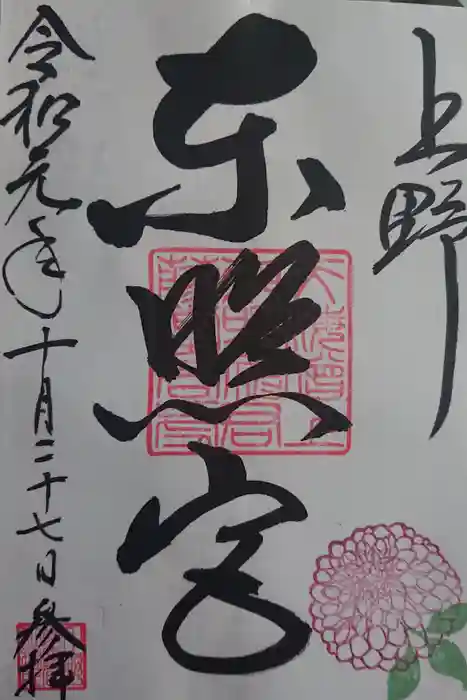 上野
東照宮
令和元年十月二十七日参拝